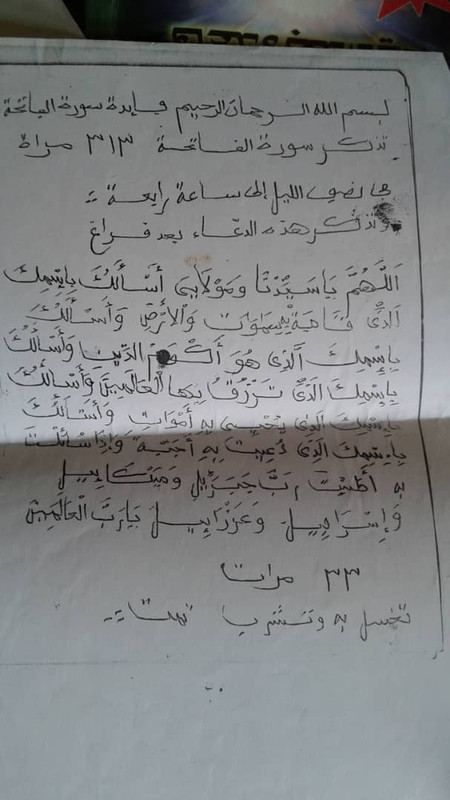 بسم الله الرحمان الرحيم فايدة سورة الفاتحة
تذكر سورة الفاتحة ٣١٣ مراة
في نصف الليل إلى ساعة رابعة
وتذكر هذه الدعاء بعد فراغ
اَللَّهُمَّ يَاسَيِّدْنَا وَمَوْلَايَ أَسْأَلُكَ بِاسْمِكَ
اَلَّذِى قَامَةْ بِسَمَوَاتِ وَالْأَرْضِ وَأَسْأَلُكَ
بِاِسْمِكَ اَلَّذِى هُوَ الدِّينِ وَأَسْأَلُكَ
بِاِسْمِكَ الَّذِى تَرْزُقُ بِهَا الْعَالَمِينَ وَأَسْأَلُكَ
بِاِسْمِكَ الَّذِى يُحْيِي بِهِ أَمْوَاتِ وَأَسْأَلُكَ
بِاِسْمِكَ الَّذِى دُعِيتَ بِهِ أَجَبْتَ وَإِذَا سُئِلْتَ
بِهِ أَعْطَيْتَ رَبَّ جِبْرِيلَ وَمِيكَايِيلَ
وَإِسْرَافِيلَ وَعَزْرَايِيلَ يَارَبَّ الْعَالَمِينَ
٣٣ مرات
تغسل به وتشرب تمت